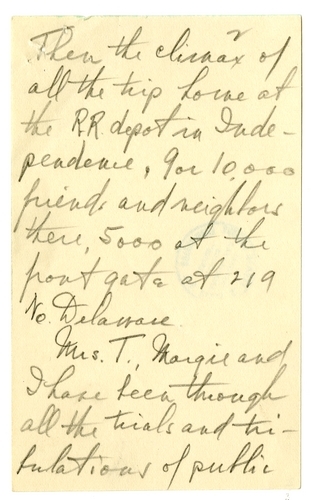 Then the climax of
all the trip home at
the R.R. depot in Inde-
pendence, 9 or 10,000
friends and neighbors
there, 5000 at the
front gate at 219
No. Delaware.
Mrs. T., Margie and
I have been through
all the trials and tri-
bulations of public